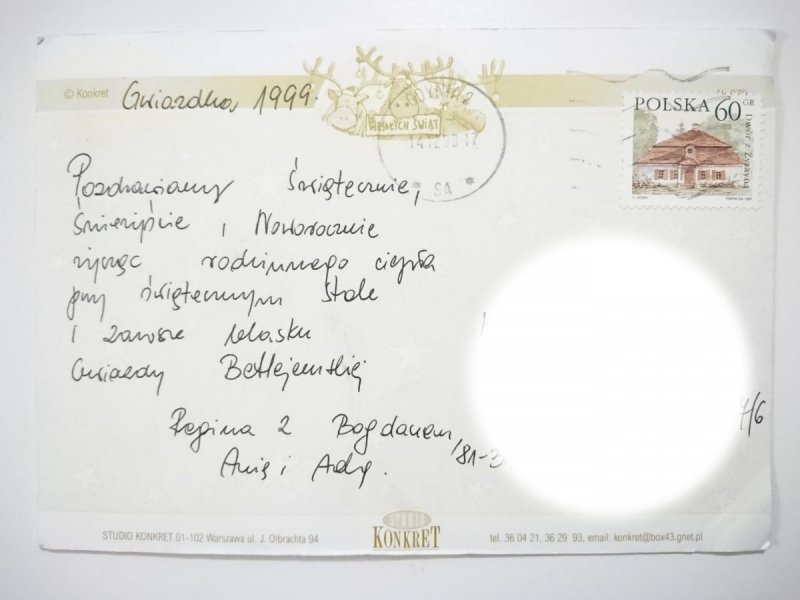 © Konkret
Gwiazdka 1999.
WESOŁYCH ŚWIĄT
GDYNIA 2
14.12.99.17
* SA *
POLSKA 60 GR
Dwór z Żyrzyna
Pozdrawiamy Świątecznie,
Śnieżyście i Noworocznie
życząc rodzinnego ciepła
przy świątecznym stole
i zawsze blasku
Gwiazdy Betlejemskiej
Regina z Bogdanem,
Anią i Adą.
81-3
7/6
STUDIO KONKRET 01-102 Warszawa ul. J. Olbrachta 94
STUDIO
KONKRET
tel. 36 04 21, 36 29 93, email: konkret@box43.gnet.pl